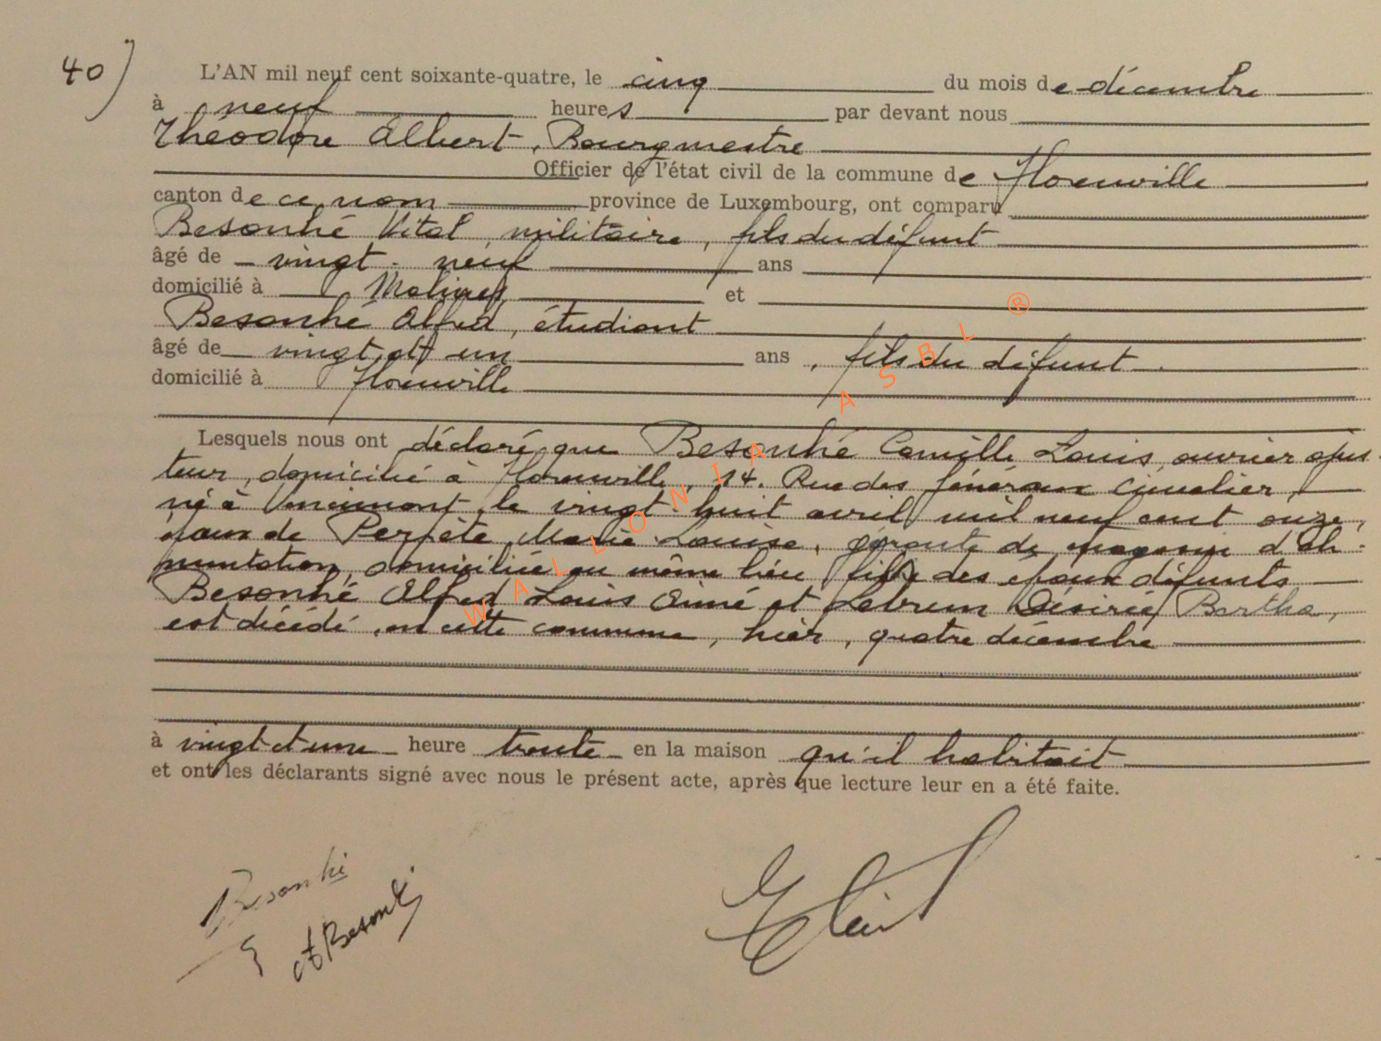 40)
L'AN mil neuf cent soixante-quatre, le cinq du mois de décembre
à neuf heures par devant nous
Théodore Albert, Bourgmestre
Officier de l'état civil de la commune de Florenville
canton de ce nom province de Luxembourg, ont comparu
Besonhé Vital, militaire, fils du défunt
âgé de vingt-neuf ans
domicilié à et
Besonhé Alfred, étudiant
âgé de vingt et un ans, fils du défunt
domicilié à Florenville
Lesquels nous ont déclaré que Besonhé Camille Louis, ouvrier ajus-
teur, domicilié à Florenville, 14. Rue des Généraux Cuvelier,
né à le vingt-huit avril mil neuf cent onze,
époux de Perlète Marie Louise, gérante de magasin d'ali-
mentation, domiciliée au même lieu, fils des époux défunts
Besonhé Alfred Louis Aimé et Lebrun Désirée Bertha,
est décédé, en cette commune, hier, quatre décembre
à vingt et une heure trente en la maison qu'il habitait
et ont les déclarants signé avec nous le présent acte, après que lecture leur en a été faite.
Besonhé
A Besonhé
WALLONIA ASBL ®